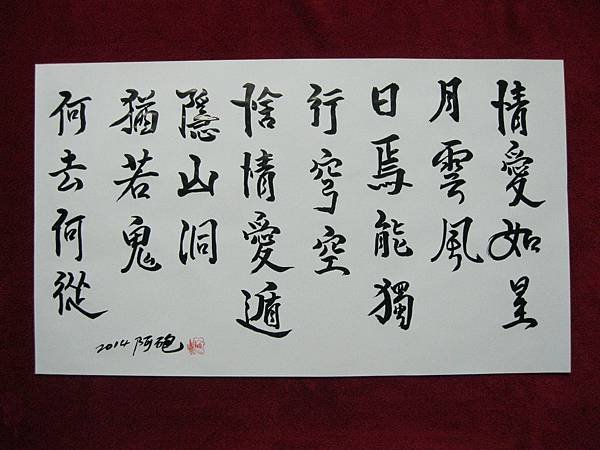 情愛如星
月雲風
日焉能獨
行穹空
捨情愛遁
隱山洞
猶若鬼
何去何從
2014 阿砲